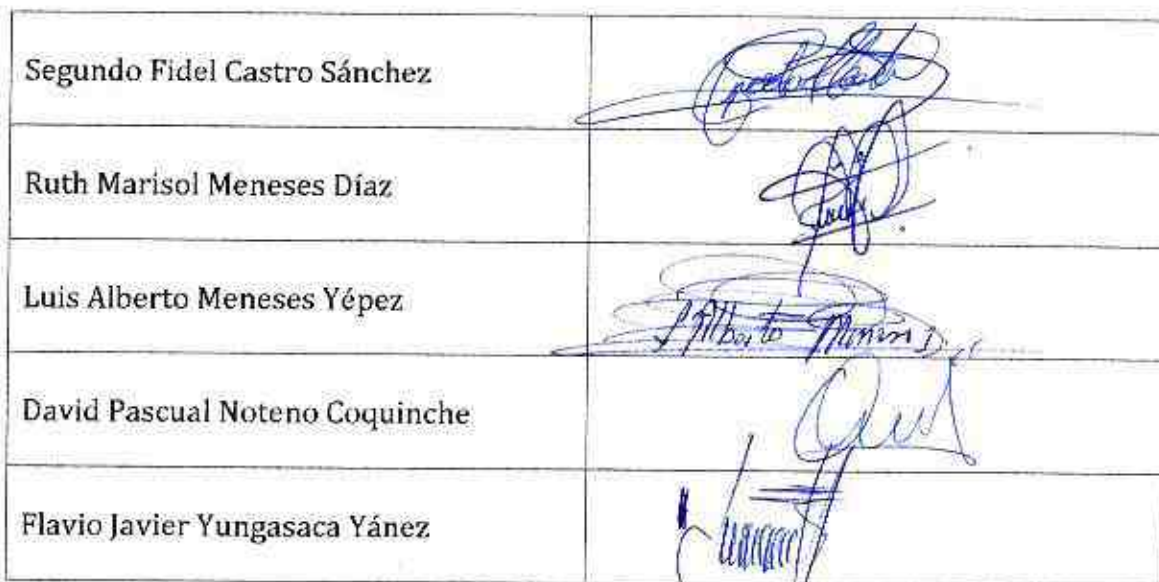 Segundo Fidel Castro Sánchez
Ruth Marisol Meneses Díaz
Luis Alberto Meneses Yépez
Alberto
David Pascual Noteno Coquinche
Flavio Javier Yungasaca Yánez